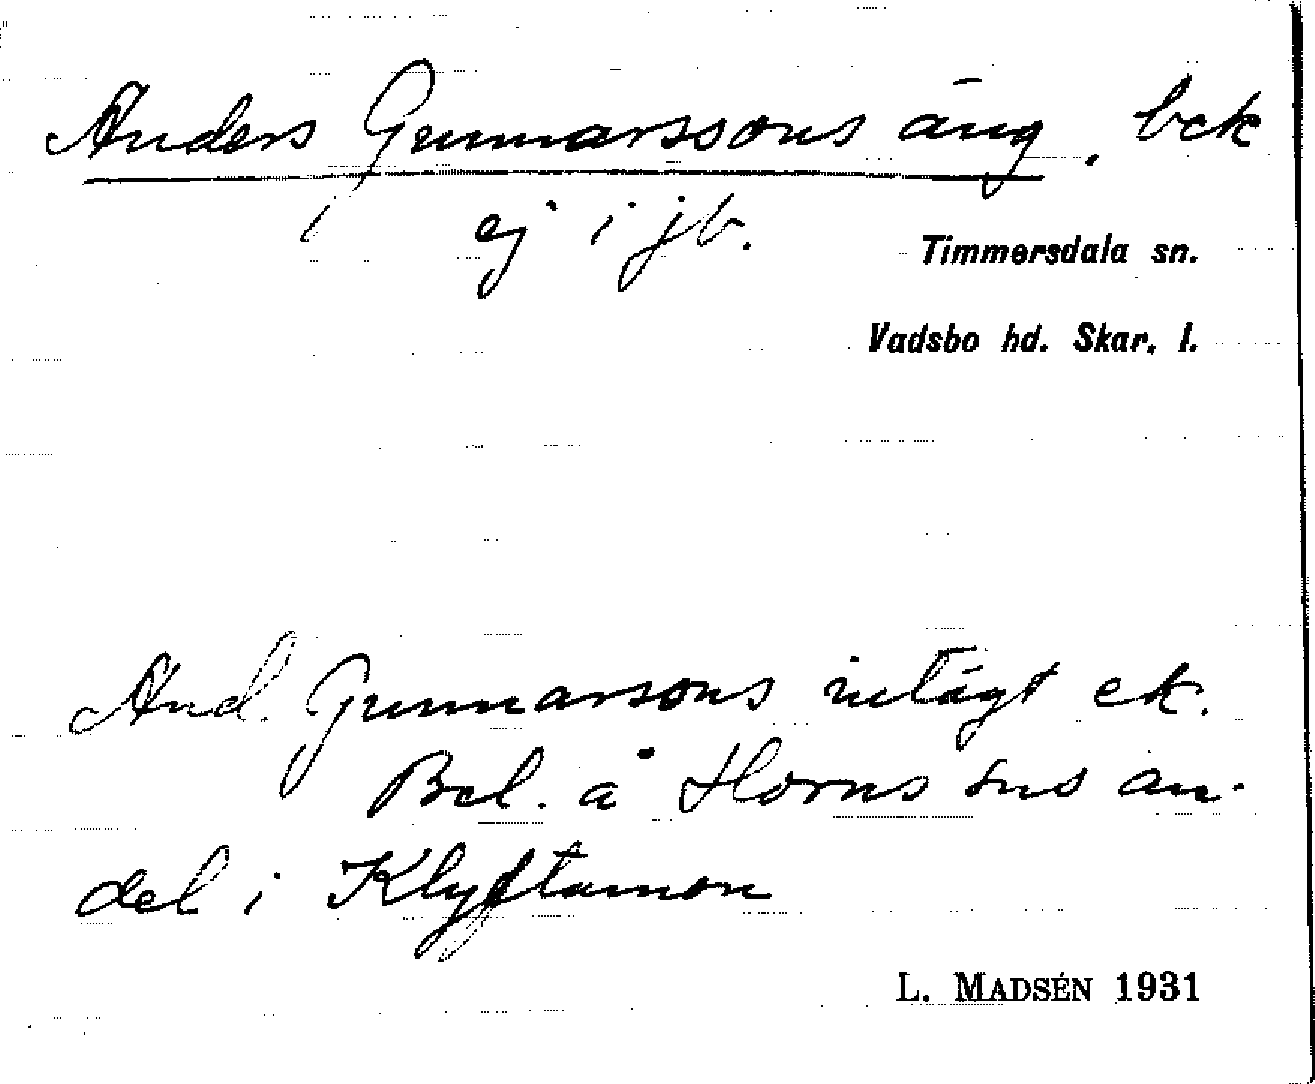 Anders Gunnarssons äng, bek
ej i jb.
Timmersdala sn.
Vadsbo hd. Skar. l.
And. Gunnarsons intägt ek.
Bel. å Horns sns an-
del i Klyftamon
L. MADSÉN 1931